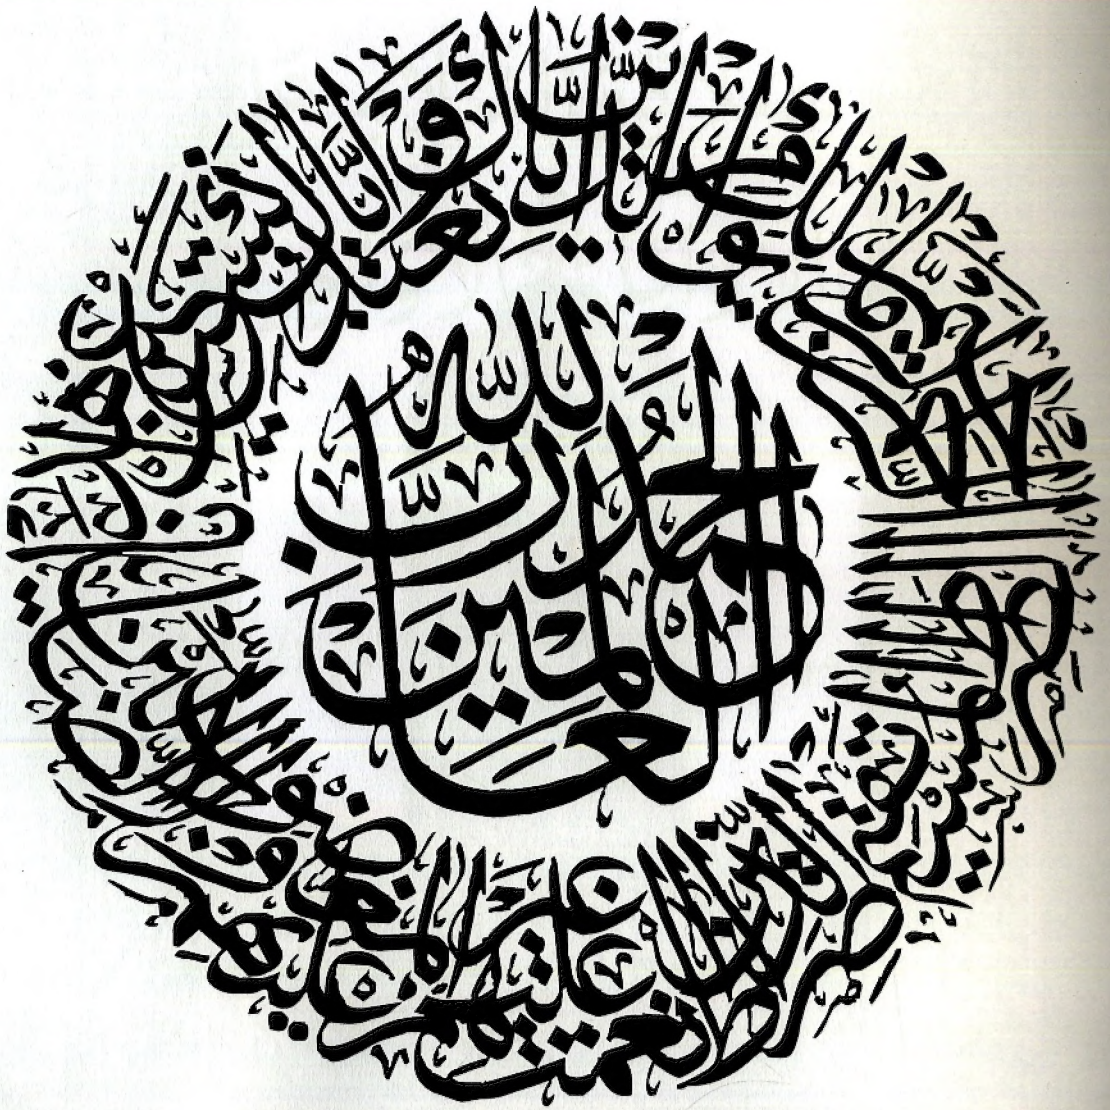 الحمد لله رب العالمين
الرحمن الرحيم مالك يوم الدين إياك نعبد وإياك نستعين اهدنا الصراط المستقيم صراط الذين أنعمت عليهم غير المغضوب عليهم ولا الضالين